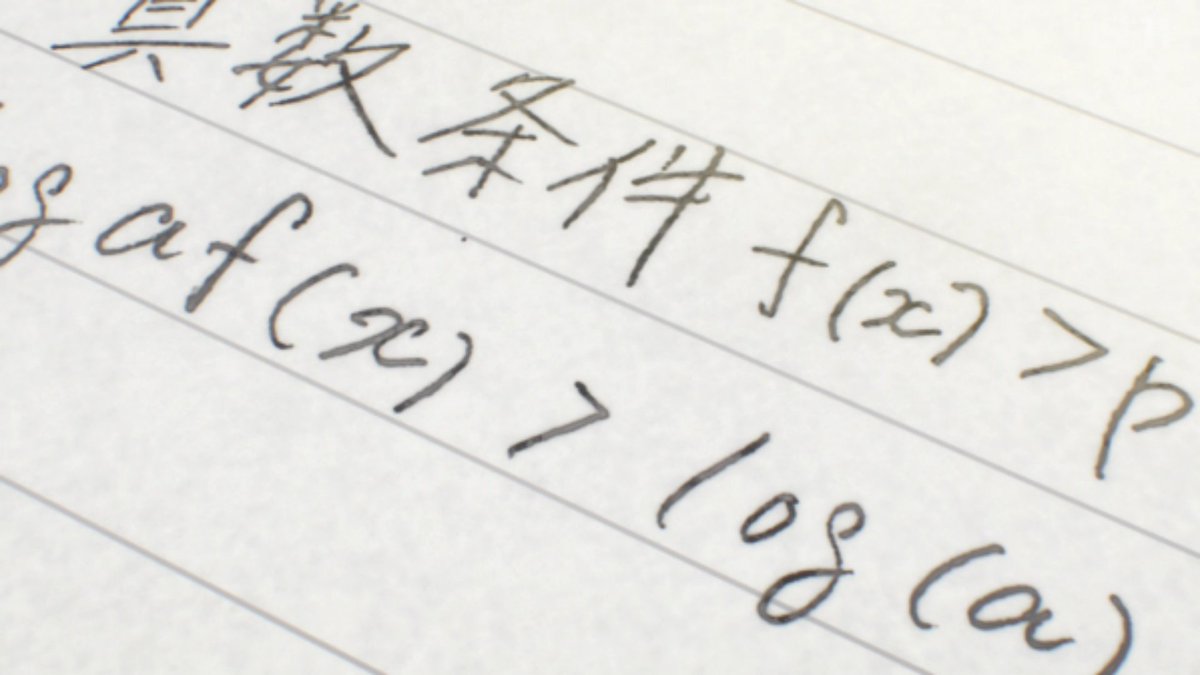 真数条件 f(x) > p
og a f(x) > log(a)